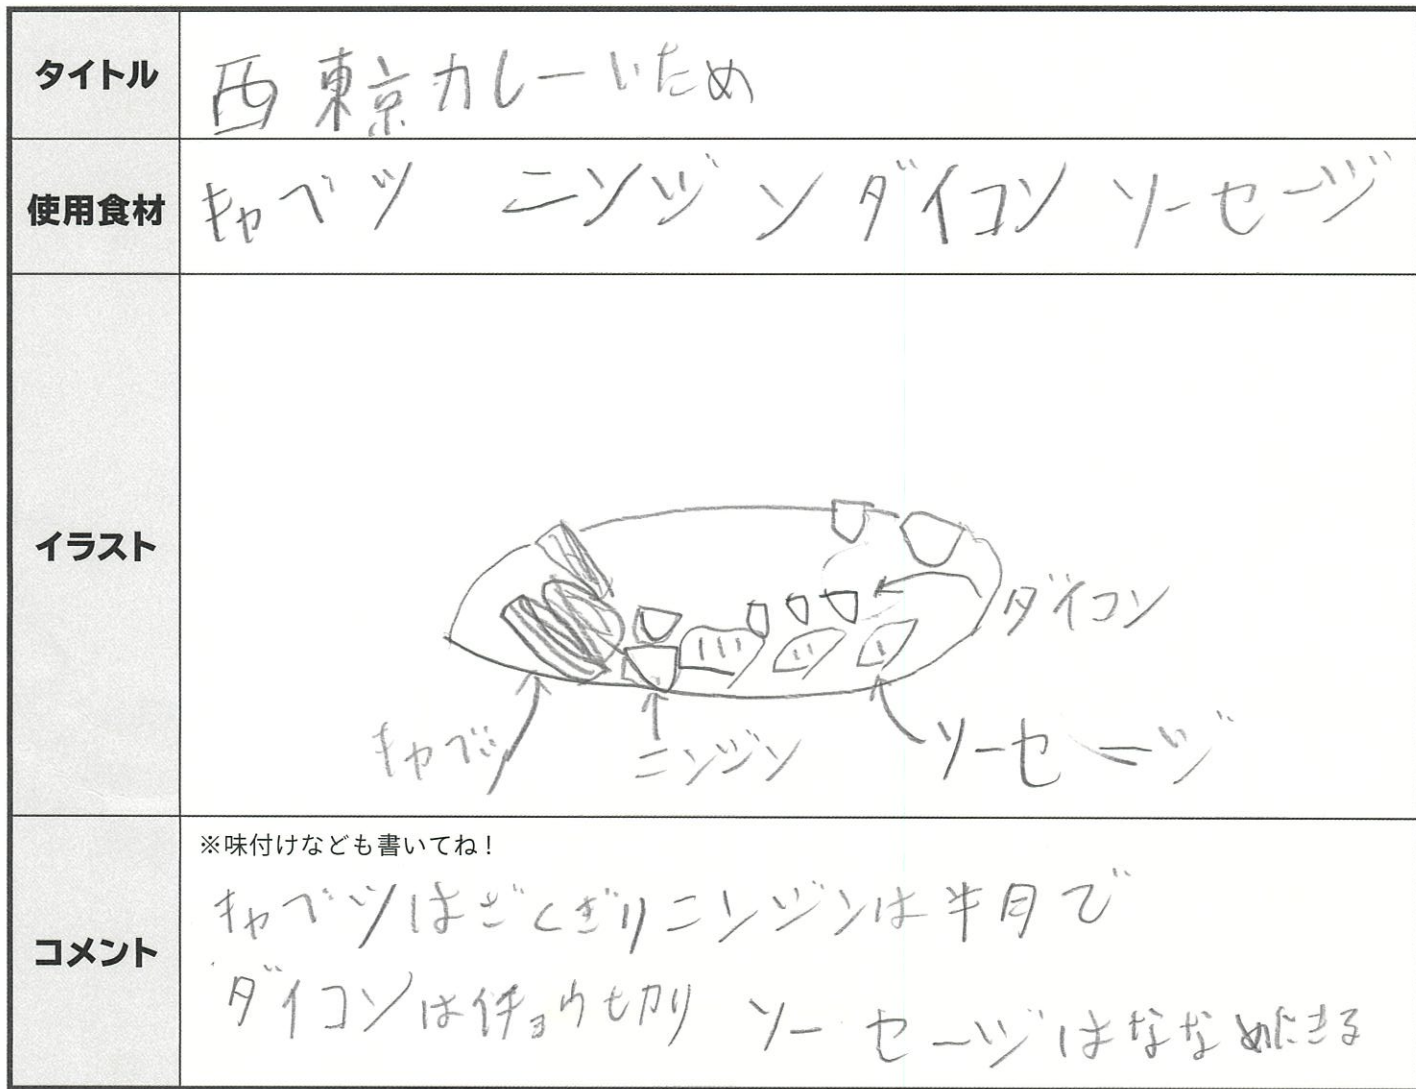 タイトル
西東京カレーいため
使用食材
キャベツ ニンジン ダイコン ソーセージ
イラスト
ダイコン
キャベツ
ニンジン
ソーセージ
コメント
※味付けなども書いてね!
キャベツはざくぎりニンジンは半月で
ダイコンはイチョウ切り ソーセージはななめにきる